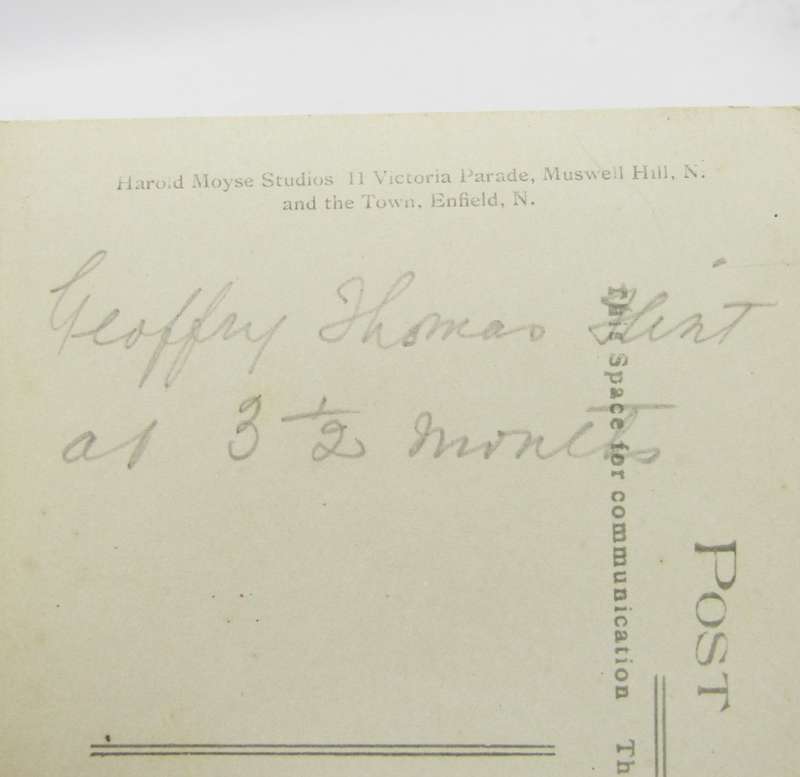 Harold Moyse Studios 11 Victoria Parade, Muswell Hill, N.
and the Town, Enfield, N.
Geoffry Thomas Flint
at 3 1/2 months
This Space for communication Th
POST